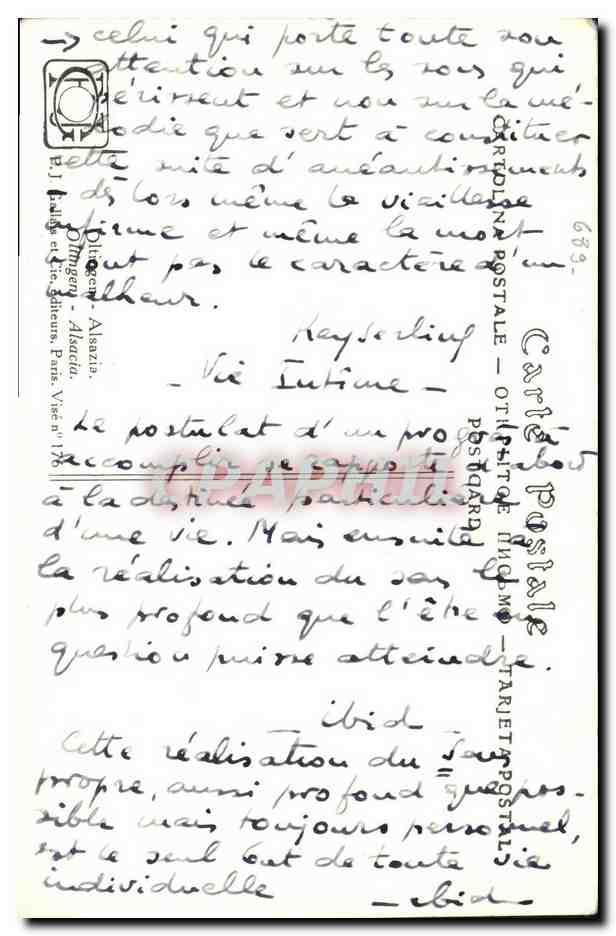 → celui qui porte toute son
attention sur les sons qui
périssent et non sur la mé-
lodie que sert à constituer
cette suite d'anéantissements
dès lors même la vieillesse
infirme et même la mort
n'ont pas le caractère d'un
malheur.
Keyserling
— Vie Intime —
Le postulat d'un progrès à
accomplir se rapporte d'abord
à la destinée particulière
d'une vie. Mais ensuite à
la réalisation du sens le
plus profond que l'être en
question puisse atteindre.
— ibid
Cette réalisation du Sens
propre, aussi profond que pos-
sible mais toujours personnel,
est le seul but de toute vie
individuelle
— ibid —
689.
Carte Postale
CARTOLINA POSTALE — ОТКРЫТОЕ ПИСЬМО — TARJETA POSTAL
POSTCARD
Oltingen - Alsazia.
Oltingen - Alsacia.
P. J. Gallais et Cie, éditeurs, Paris. Visé nº 176
CPARAMA